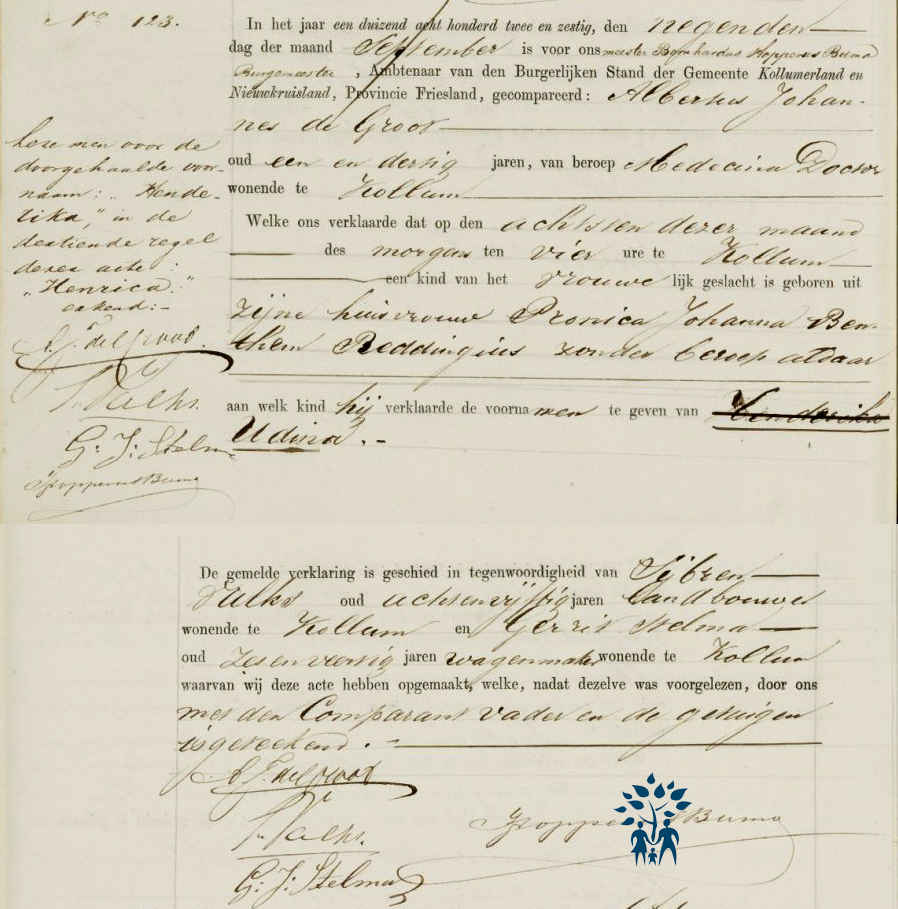 No 123.
In het jaar een duizend acht honderd twee en zestig, den negenden
dag der maand September is voor ons meester Bernhardus Hopperus Buma
Burgemeester, Ambtenaar van den Burgerlijken Stand der Gemeente Kollumerland en
Nieuwkruisland, Provincie Friesland, gecompareerd: Albertus Johan-
nes de Groot
oud een en dertig jaren, van beroep Medecina Doctor
wonende te Kollum
Welke ons verklaarde dat op den achtsten dezer maand
des morgens ten vier ure te Kollum
een kind van het vrouwelijk geslacht is geboren uit
zijne huisvrouw Pronica Johanna Ben-
them Reddingius zonder beroep aldaar
aan welk kind hij verklaarde de voornamen te geven van Henderika
Udina.-
lese men voor de
doorgehaalde voor-
naam: "Hende-
rika," in de
dertiende regel
dezer acte:
"Henrica."
erkend:-
A. J. de Groot.
S. Valks.
G: J: Stelma
Hopperus Buma
De gemelde verklaring is geschied in tegenwoordigheid van Sijbren
Valks oud achtenvijftig jaren landbouwer
wonende te Kollum en Gerrit Stelma
oud zesenveertig jaren wagenmaker wonende te Kollum
waarvan wij deze acte hebben opgemaakt, welke, nadat dezelve was voorgelezen, door ons
met den Comparant vader en de getuigen
is geteekend.-
A. J. de Groot
S. Valks.
G: J: Stelma
Hopperus Buma